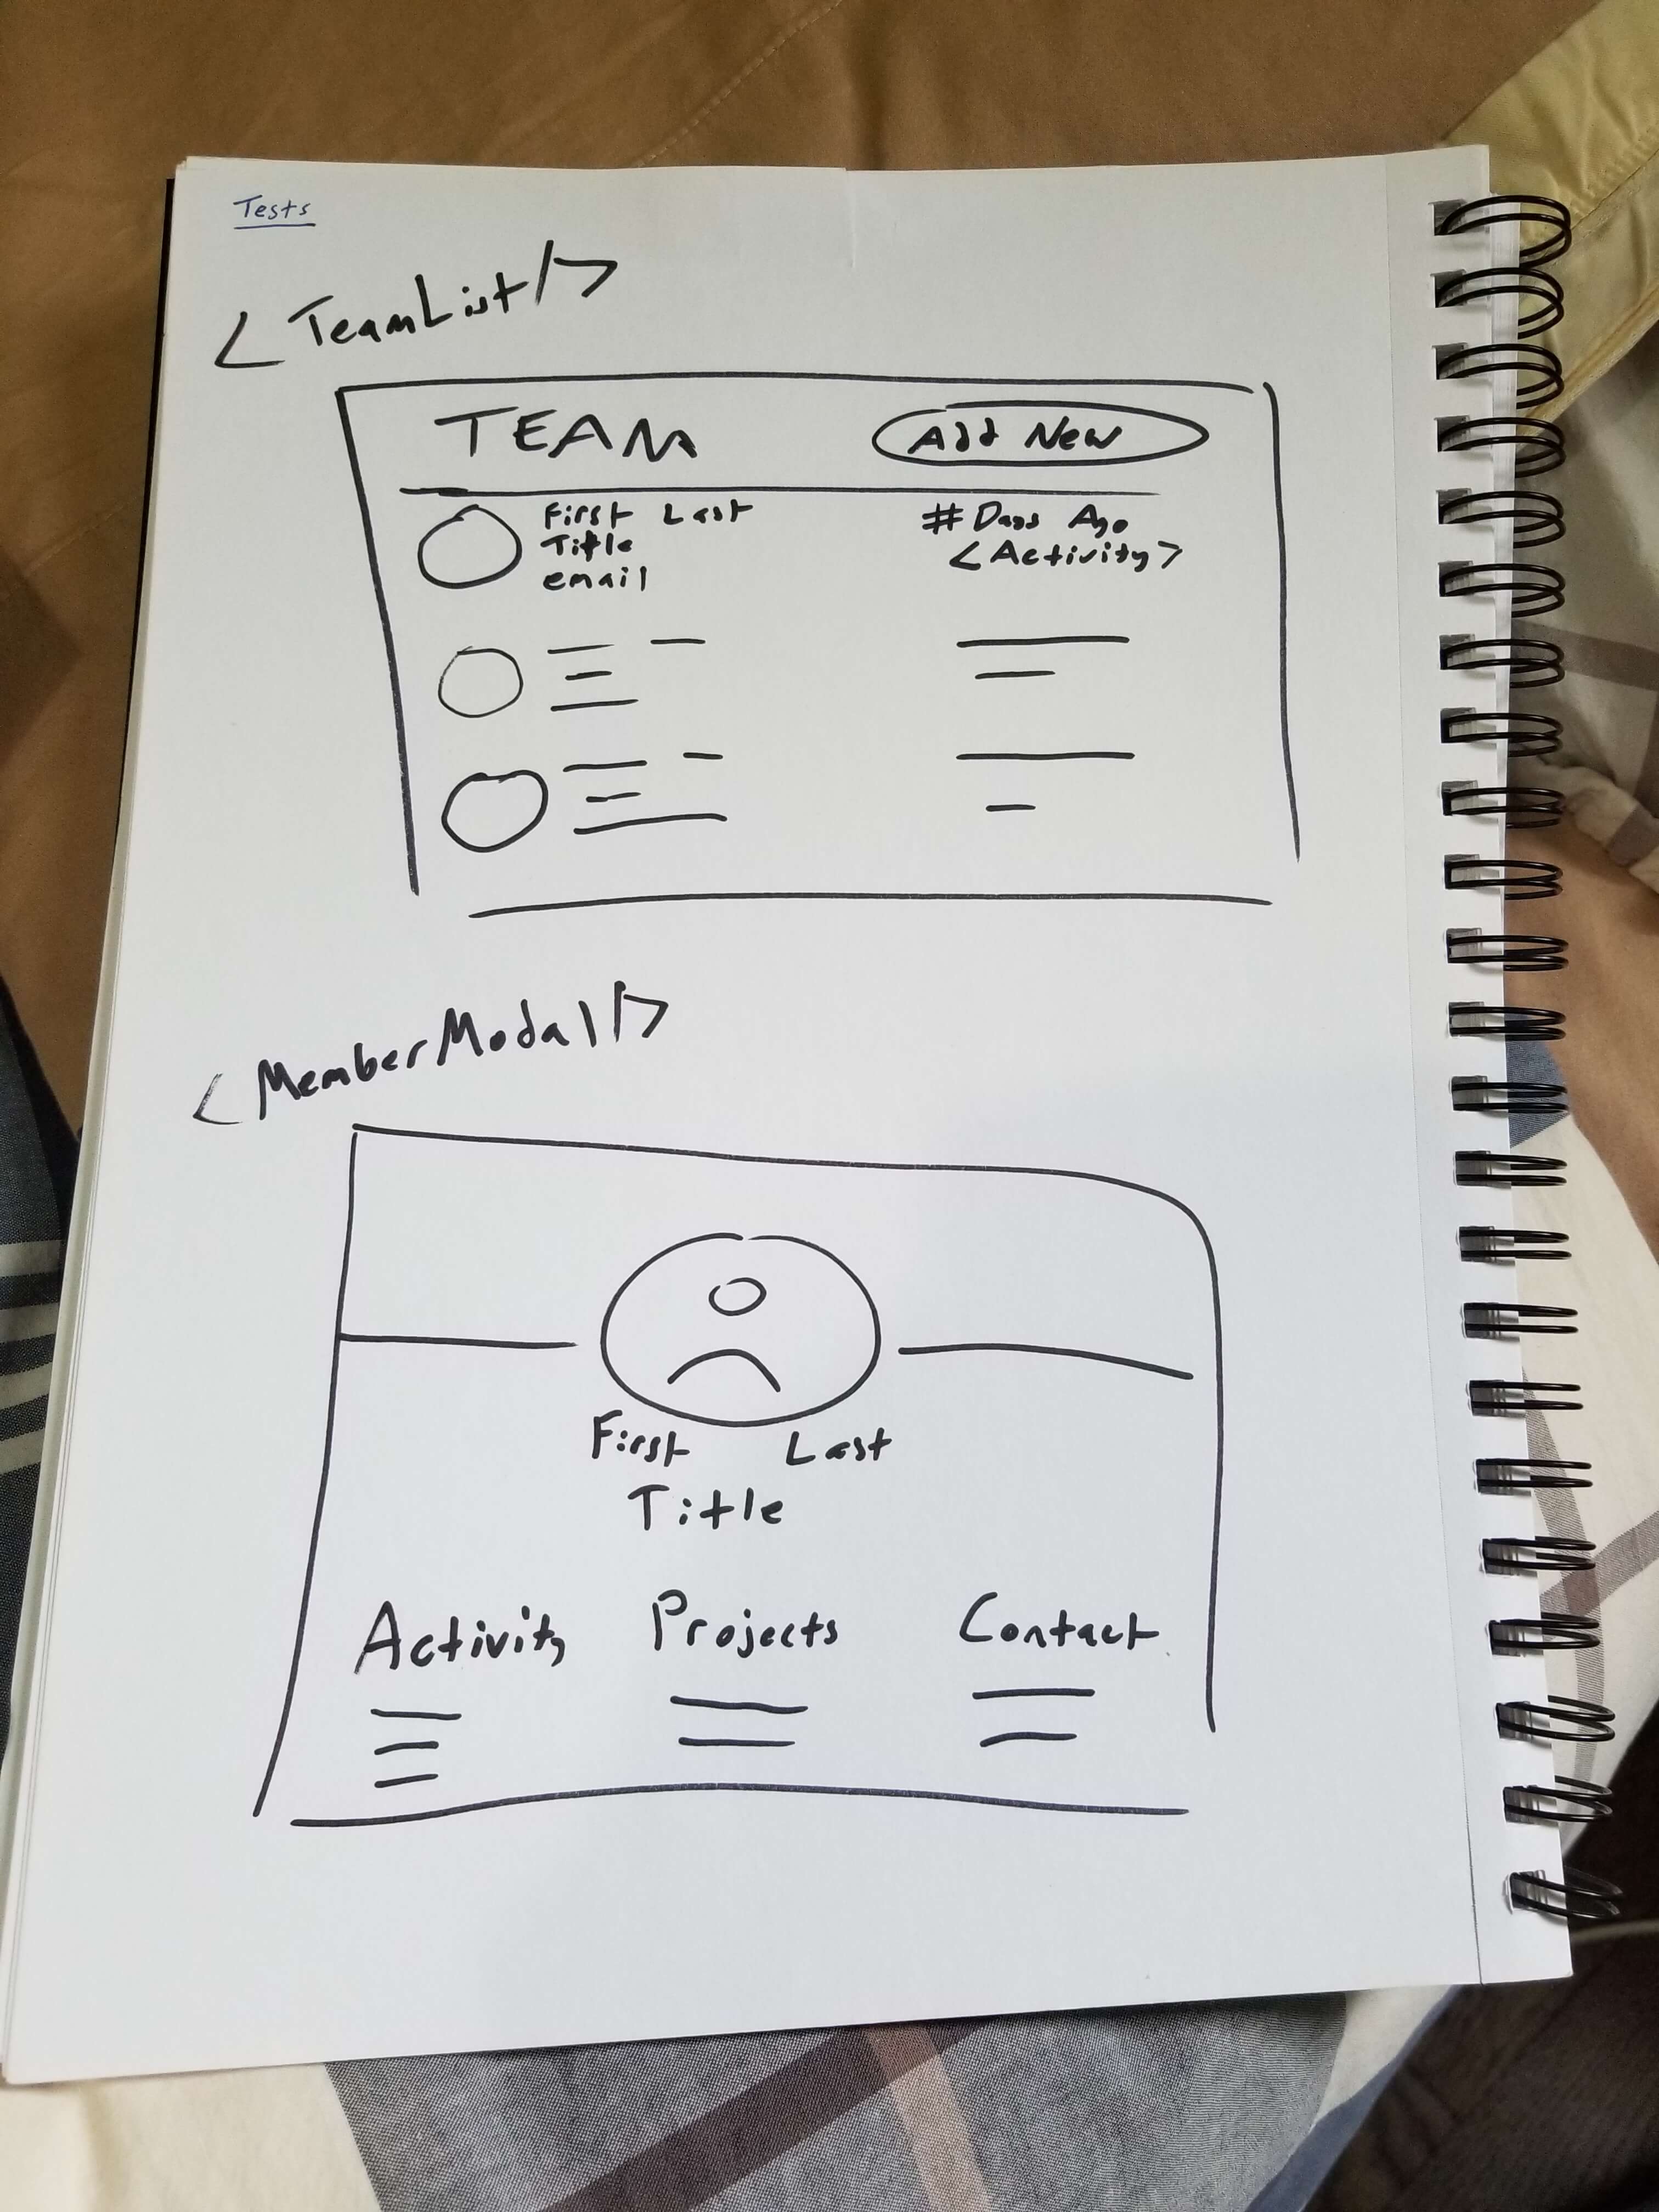 Tests
<TeamList/>
TEAM
Add New
First Last
Title
email
# Days Ago
<Activity>
<MemberModal/>
First Last
Title
Activity
Projects
Contact